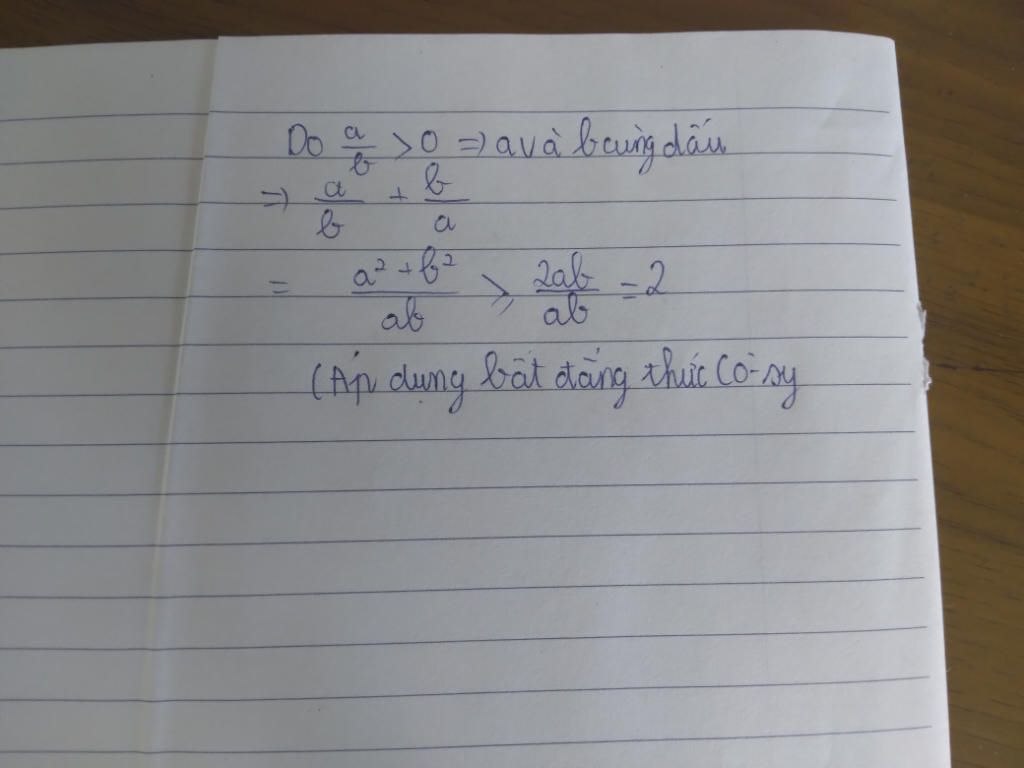 Do a/b > 0 => a và b cùng dấu
=> a/b + b/a
= (a² + b²)/ab ⩾ 2ab/ab = 2
(Áp dụng bất đẳng thức Cô-sy